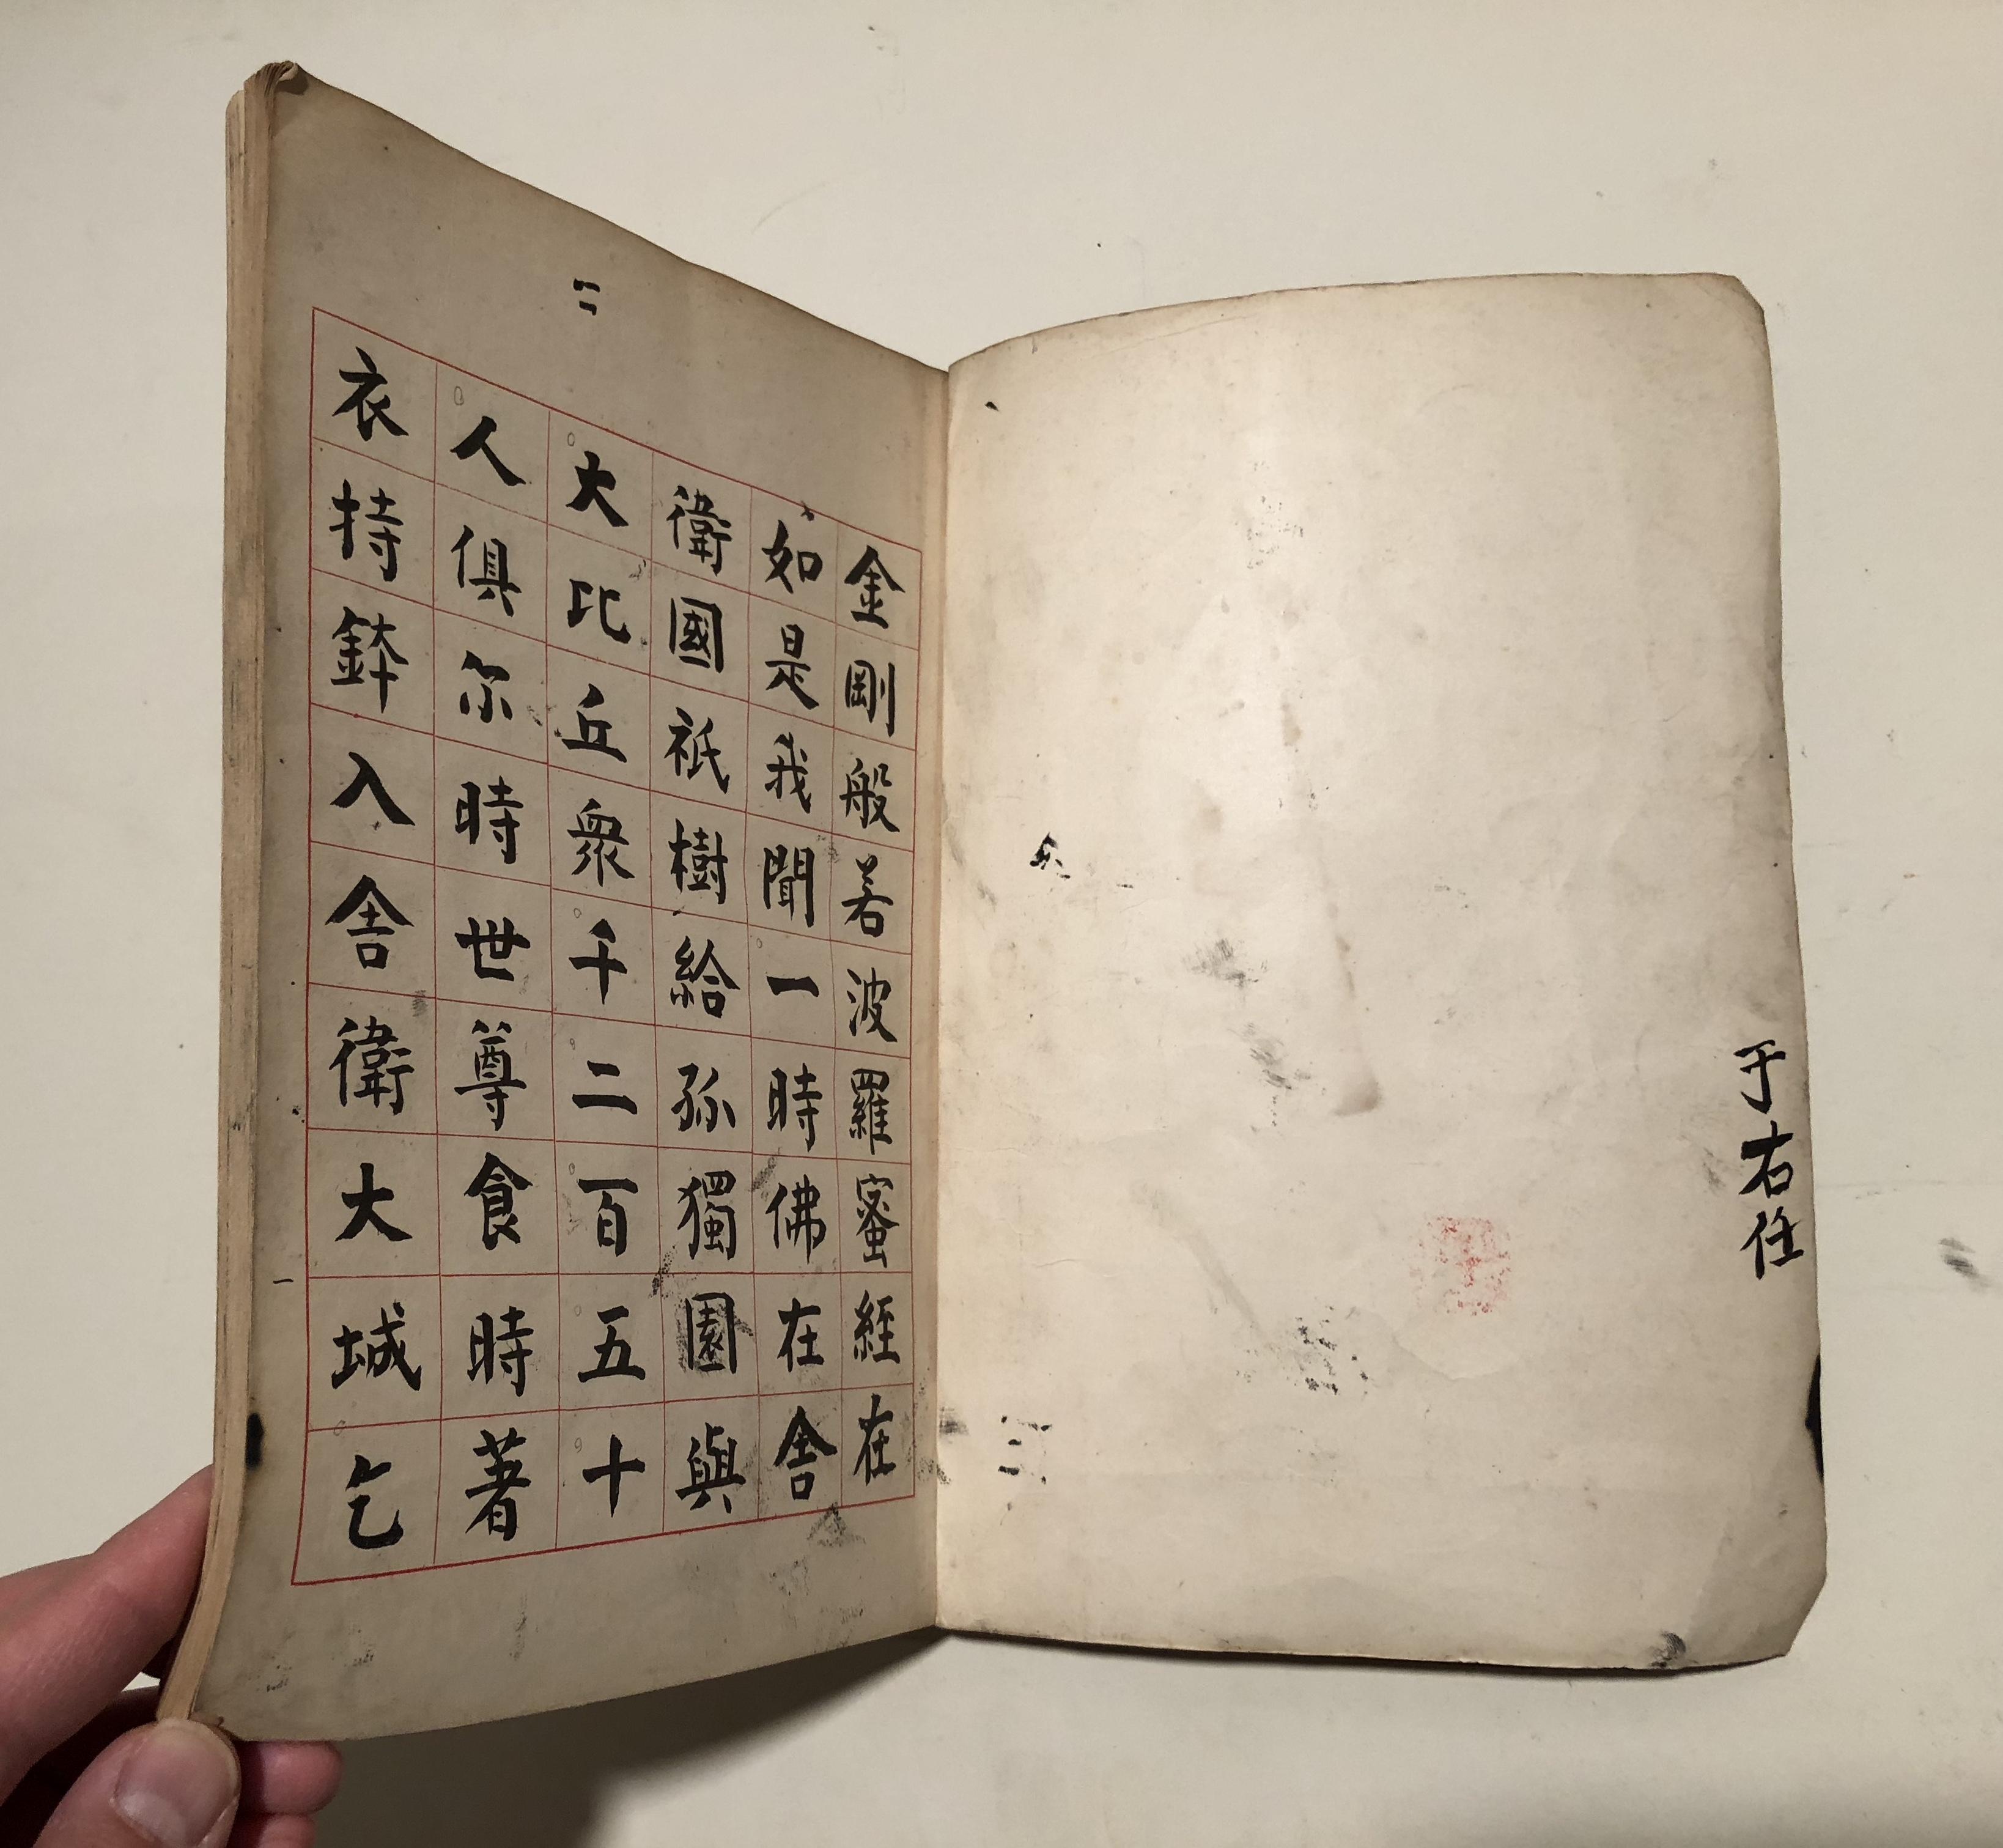 于右任
二
金剛般若波羅蜜經在
如是我聞一時佛在舎
衛國祇樹給孫獨園與
大比丘衆千二百五十
人俱尓時世尊食時著
衣持鉢入舎衛大城乞
一